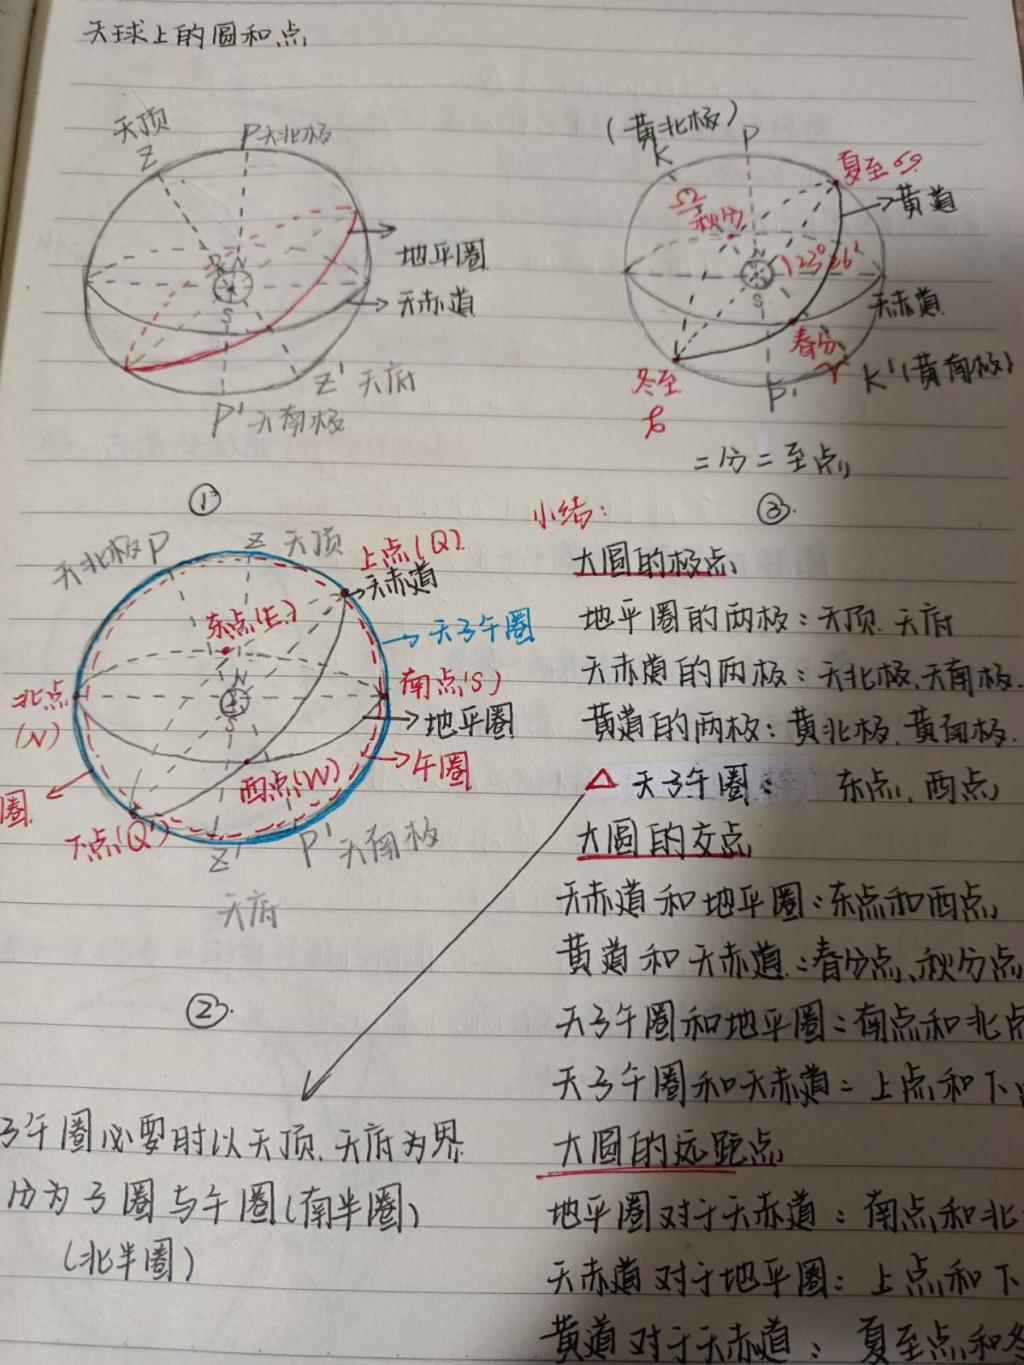 天球上的圆和点
天顶
Z
P天北极
地平圈
天赤道
N
S
Z' 天府
P' 天南极
①
(黄北极)
K
P
夏至 ♋
黄道
♎
秋分
N
S
23°26'
天赤道
春分
♈
冬至
♑
K'(黄南极)
P'
二分二至点
③
天北极P
Z 天顶
上点(Q)
天赤道
东点(E)
天子午圈
北点
(N)
N
S
南点(S)
地平圈
西点(W)
午圈
圈
下点(Q')
Z'
P' 天南极
天府
②
小结:
大圆的极点
地平圈的两极:天顶、天府
天赤道的两极:天北极、天南极.
黄道的两极:黄北极、黄南极.
△ 天子午圈: 东点、西点
大圆的交点
天赤道和地平圈:东点和西点
黄道和天赤道:春分点、秋分点
天子午圈和地平圈:南点和北点
天子午圈和天赤道:上点和下
大圆的远距点
地平圈对于天赤道:南点和北
天赤道对于地平圈:上点和下
黄道对于天赤道:夏至点和冬
子午圈必要时以天顶、天府为界
分为子圈与午圈(南半圈)
(北半圈)